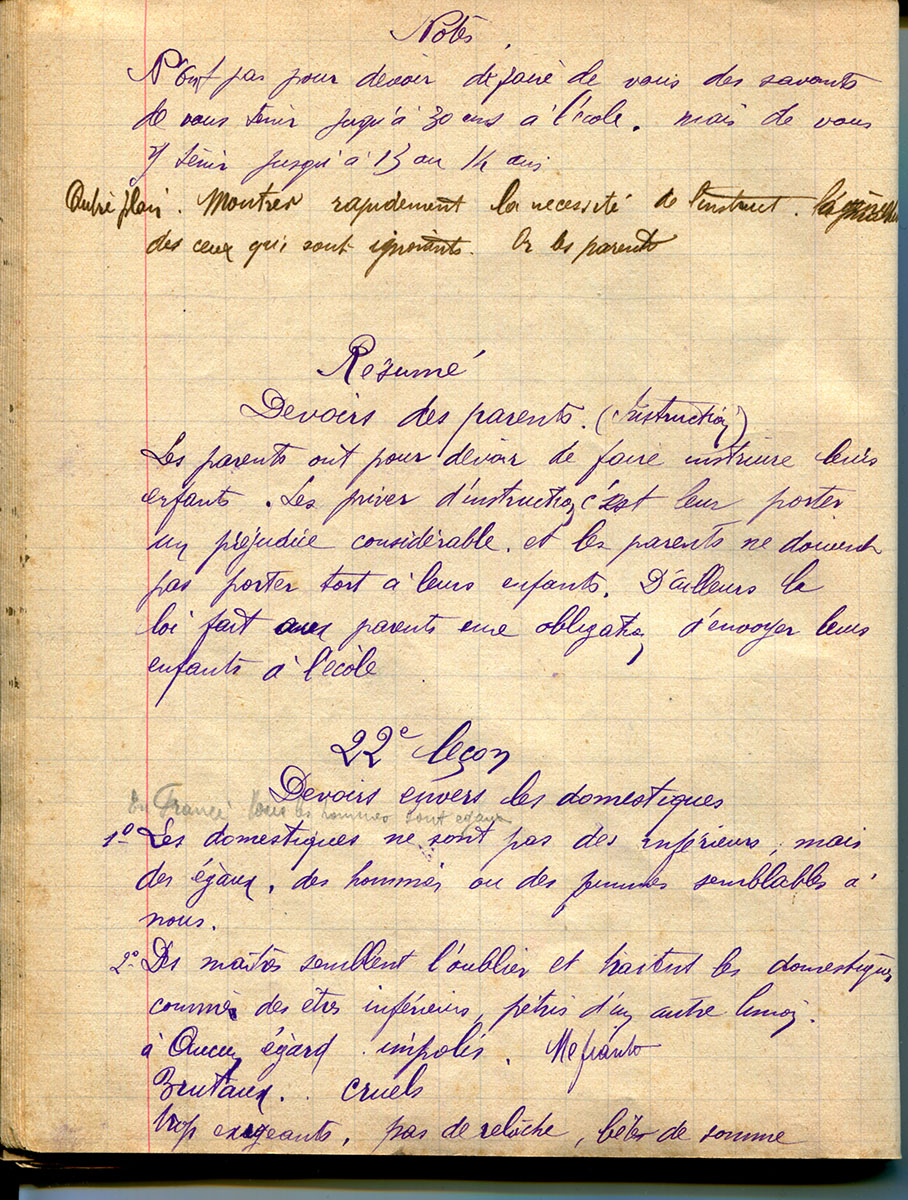 Notes
N'ont pas pour devoir de faire de vous des savants
de vous tenir jusqu'à 30 ans à l'école. mais de vous
y tenir jusqu'à 13 ou 14 ans
Autre plan. Montrer rapidement la necessité de l'instruct. la
des ceux qui sont ignorants. Or les parents
Résumé
Devoirs des parents. (Instruction)
Les parents ont pour devoir de faire instruire leurs
enfants. Les priver d'instruction c'est leur porter
un préjudice considérable. et les parents ne doivent
pas porter tort à leurs enfants. D'ailleurs la
loi fait aux parents une obligation d'envoyer leurs
enfants à l'école
22e leçon
Devoirs envers les domestiques
En France tous les hommes sont égaux
1º Les domestiques ne sont pas des inférieurs, mais
des égaux, des hommes ou des femmes semblables à
nous.
2º Des maîtres semblent l'oublier et traitent les domestiques
comme des êtres inférieurs, pétris d'un autre limon.
à Aucun égard. impolis. Méfiants
Brutaux.. cruels
trop exigeants, pas de relâche, bêtes de somme